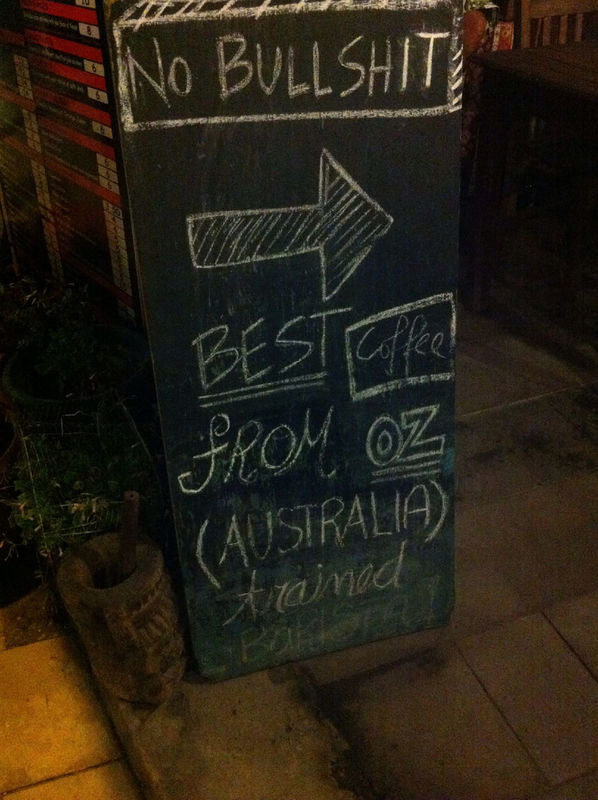 NO BULLSHIT
BEST Coffee
fROM OZ
(AUSTRALIA)
trained